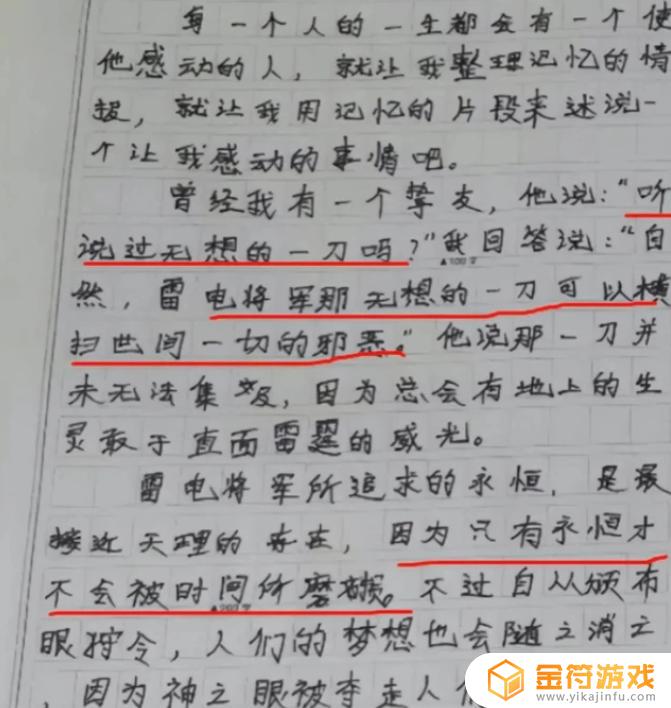 每一个人的一生都会有一个使
他感动的人，就让我整理记忆的情
报，就让我用记忆的片段来述说一
个让我感动的事情吧。
曾经我有一个挚友，他说：“听
说过无想的一刀吗？”我回答说：“自
▲100字
然，雷电将军那无想的一刀可以横
扫世间一切的邪恶。”他说那一刀并
未无法企及，因为总会有地上的生
灵敢于直面雷霆的威光。
雷电将军所追求的永恒，是最
接近天理的存在，因为只有永恒才
不会被时间所磨损。不过自从颁布
▲200字
眼狩令，人们的梦想也会随之消亡
，因为神之眼被夺走人们
金符游戏
www.yikajinfu.com